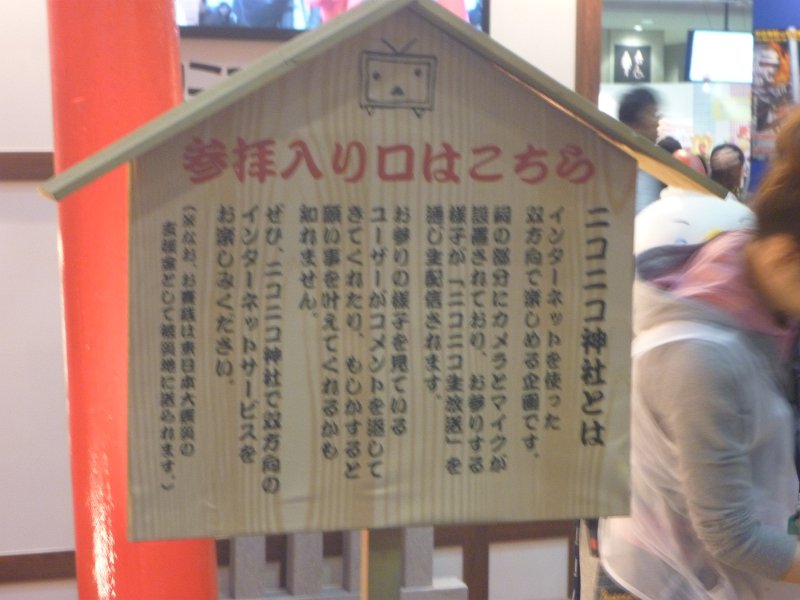 参拝入り口はこちら
ニコニコ神社とは
インターネットを使った
双方向で楽しめる企画です。
祠の部分にカメラとマイクが
設置されており、お参りする
様子が「ニコニコ生放送」を
通じ生配信されます。
お参りの様子を見ている
ユーザーがコメントを返して
きてくれたり、もしかすると
願い事を叶えてくれるかも
知れません。
ぜひ、ニコニコ神社で双方向の
インターネットサービスを
お楽しみください。
(※なお、お賽銭は東日本大震災の
支援金として被災地に送られます。)